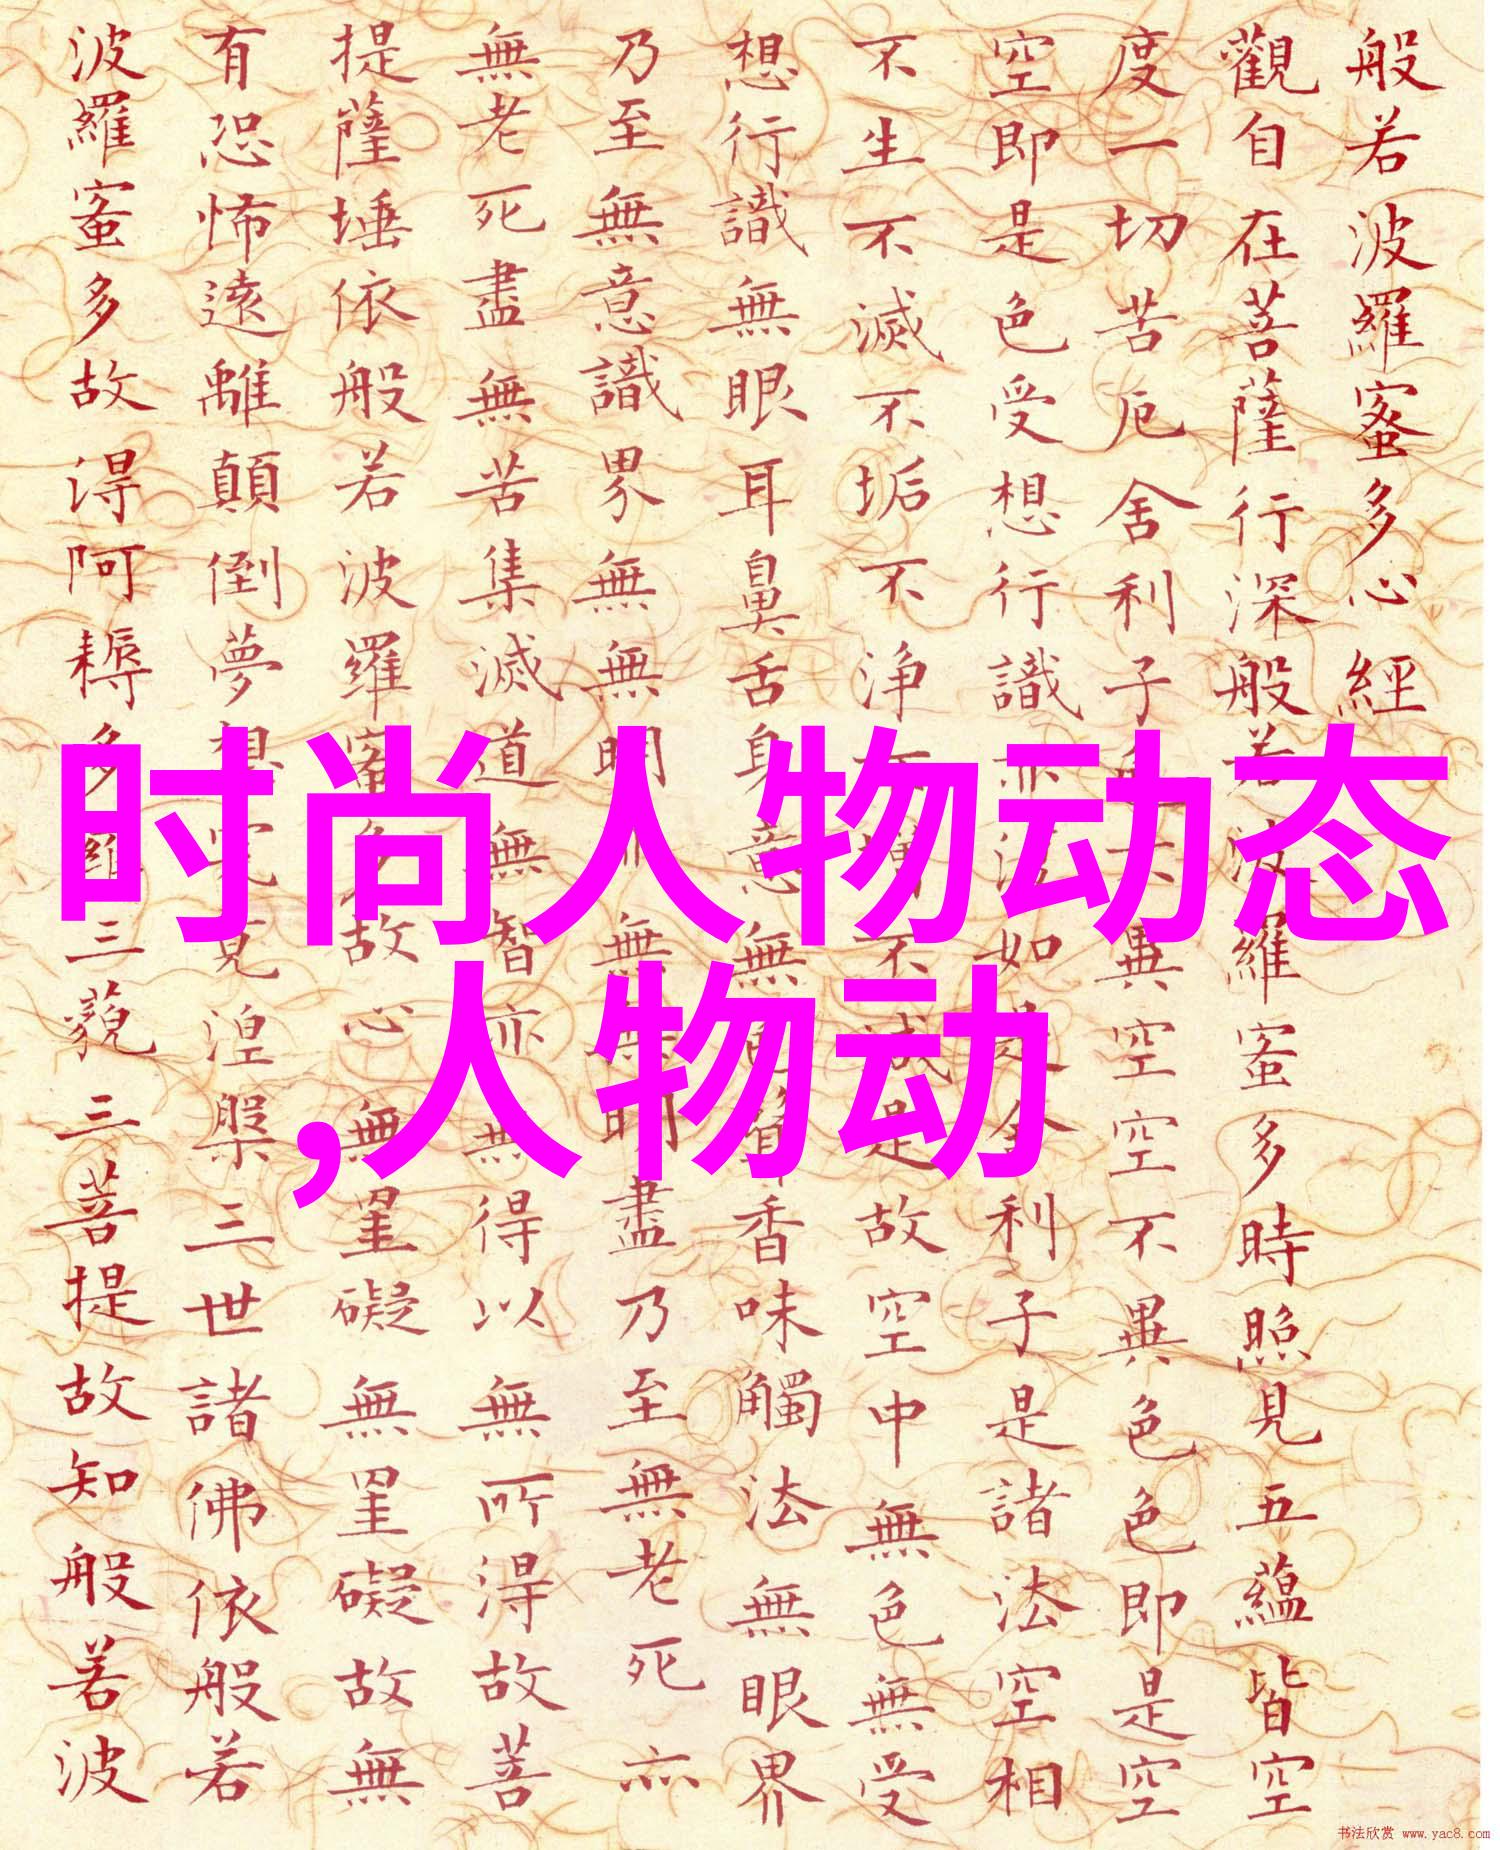 般若波羅蜜多心經
觀自在菩薩行深般若波羅蜜多時照見五蘊皆空
度一切苦厄舍利子異空空不異色色即是空
空即是色受想行識亦如舍利子是諸法空相
不生不滅不垢不淨不增不減是故空中無色無受
想行識無眼耳鼻舌身意無色聲香味觸法無眼界
乃至無意識界無無明亦無無明盡乃至無老死亦
無老死盡無苦集滅道無智亦無得以無所得故菩
提薩埵依般若波羅蜜多故心無罣礙無罣礙故無
有恐怖遠離顛倒夢想究竟涅槃三世諸佛依般若
波羅蜜多故得阿耨多羅三藐三菩提故知般若波
时尚人物动态
,人物动
书法欣赏 www.yac8.com